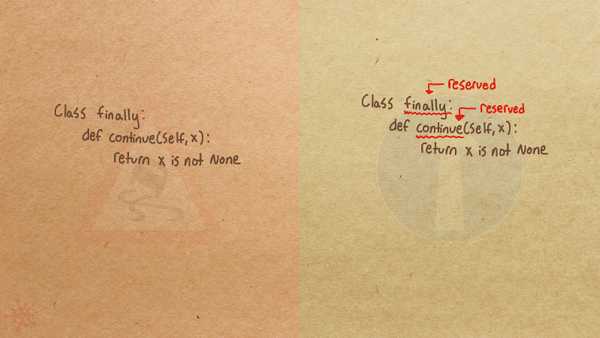 Class finally:
def continue(self, x):
return x is not None
reserved
reserved
Class finally:
def continue(self, x):
return x is not None